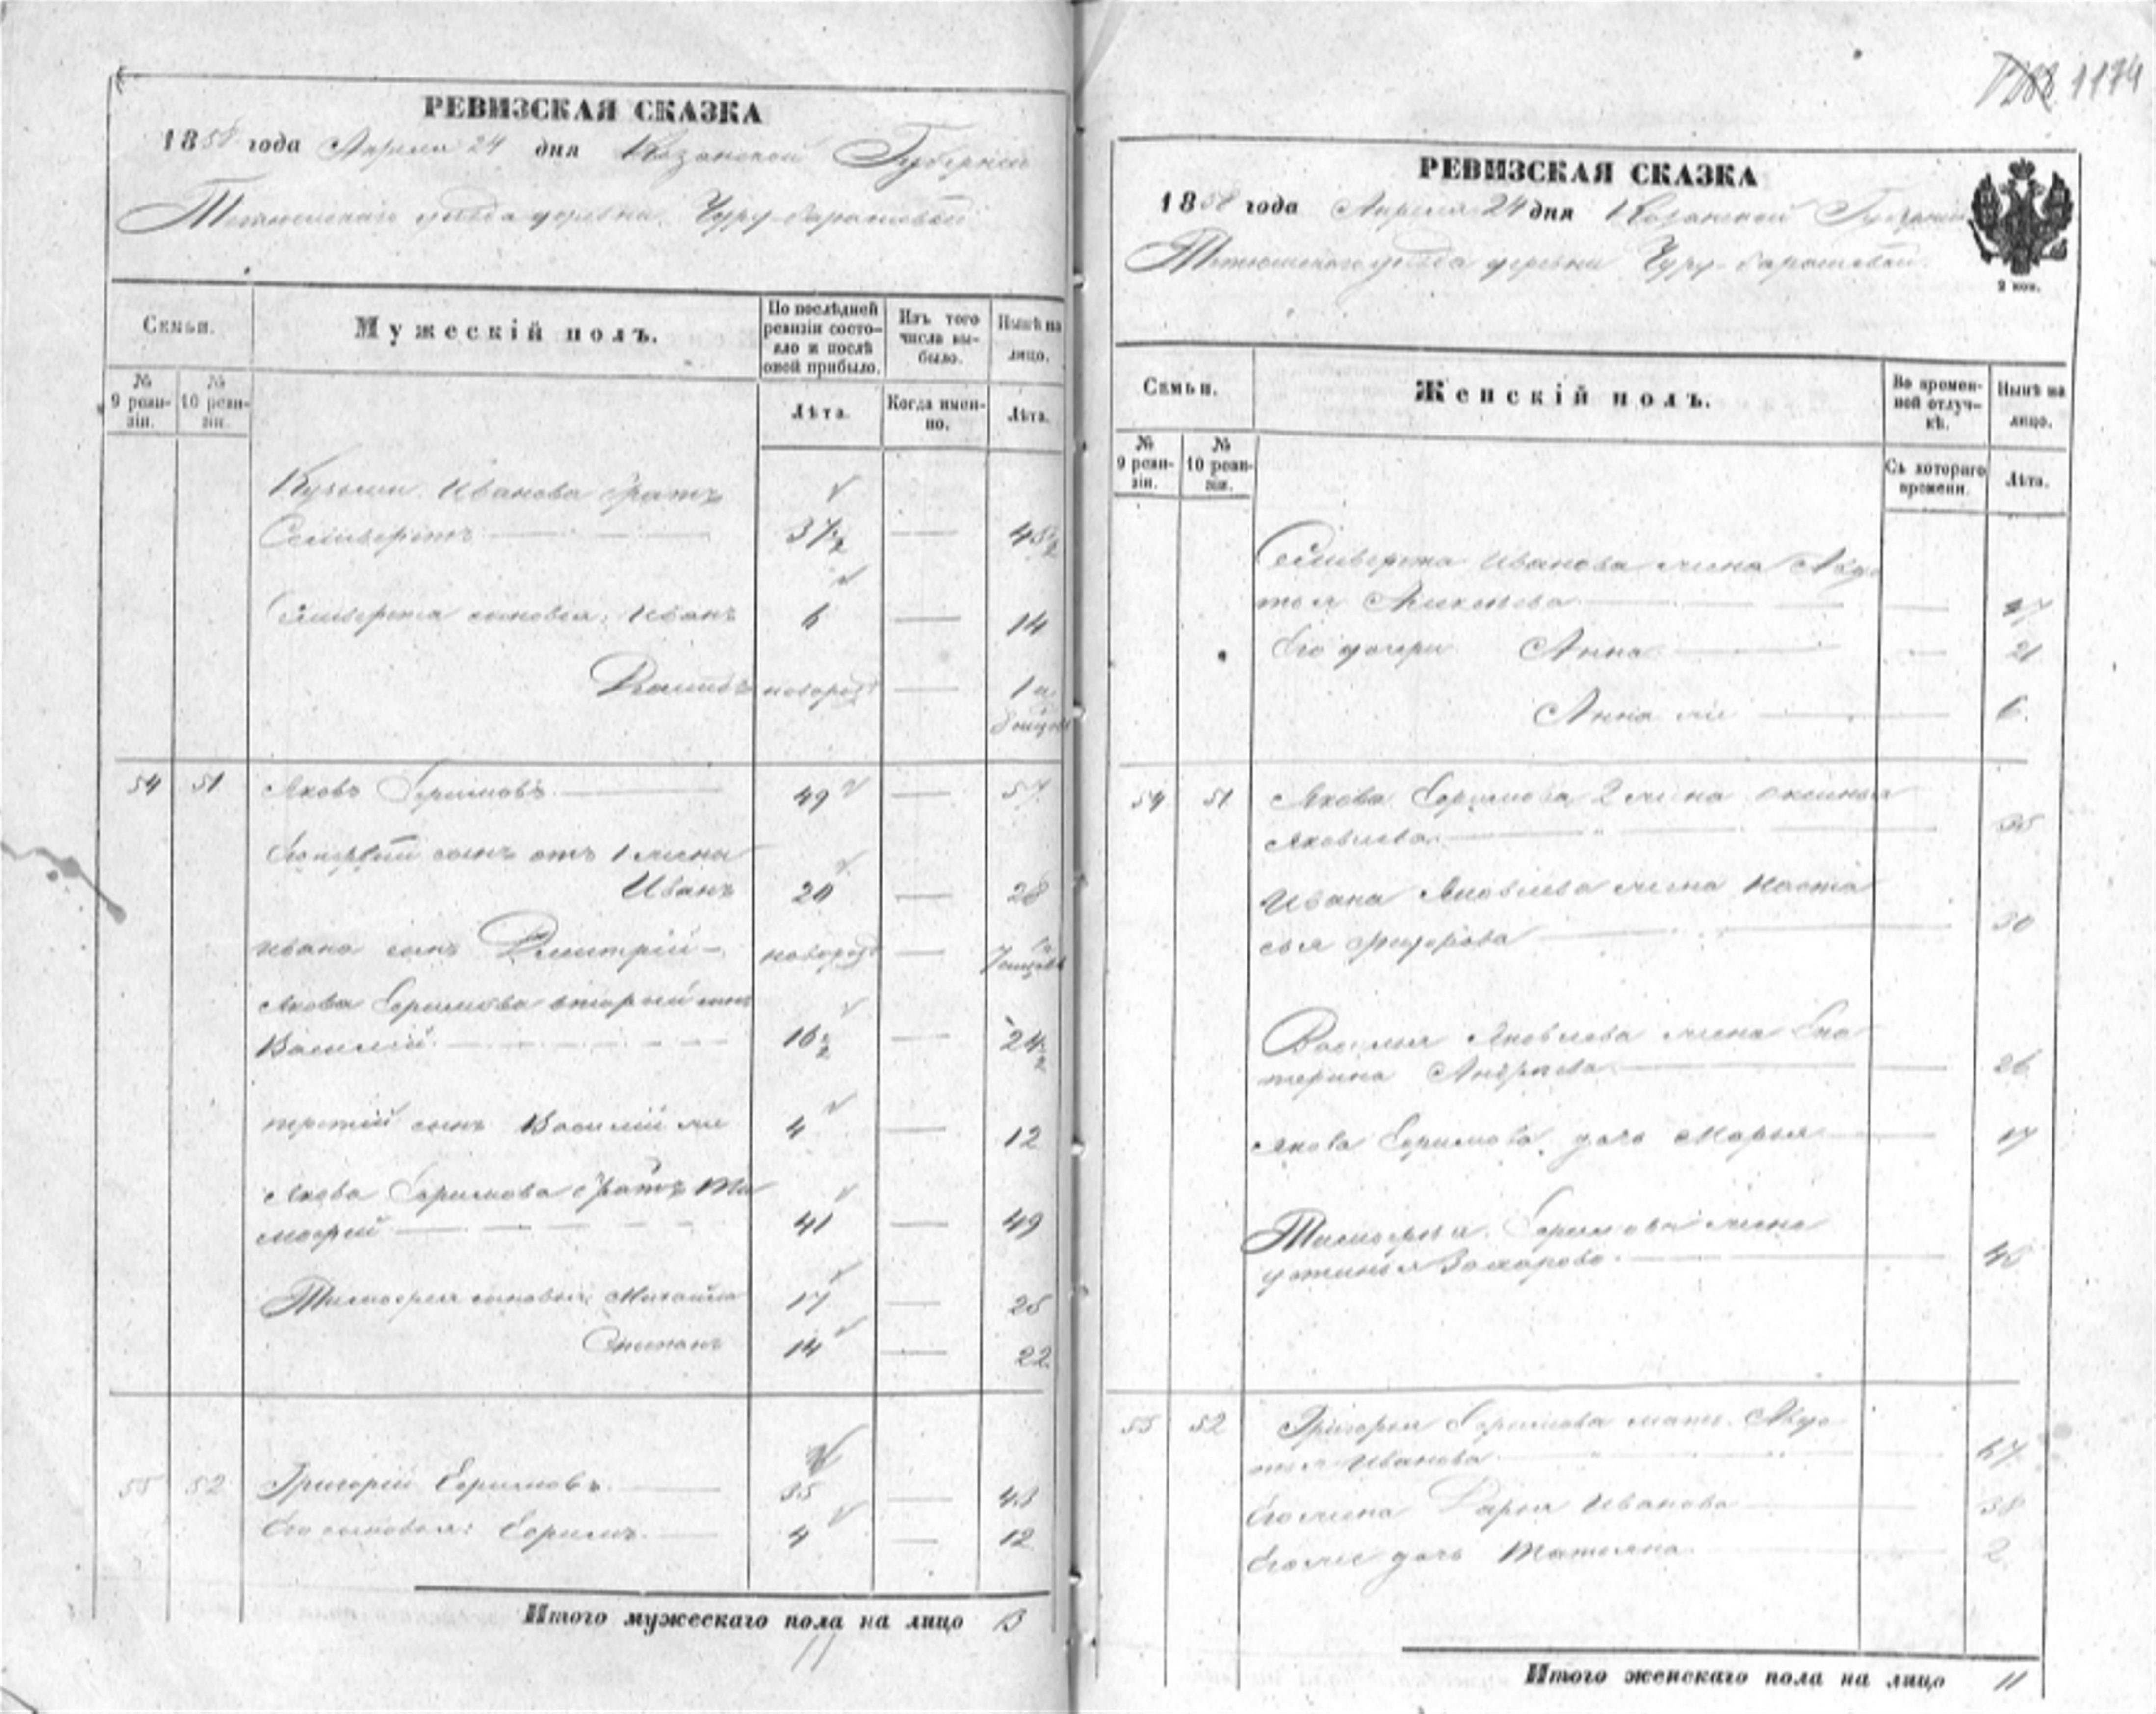 РЕВИЗСКАЯ СКАЗКА
1858 года Апреля 24 дня Казанской Губернии
Тетюшскаго уезда деревни Чуру-барашевой
Семьи.
Мужескій полъ.
По послѣдней ревизіи состояло и послѣ оной прибыло.
Изъ того числа выбыло.
Нынѣ на лицо.
№ 9 ревизіи.
№ 10 ревизіи.
Лѣта.
Когда именно.
Лѣта.
Кузьмы Иванова братъ
Селиверстъ 37½ — 45½
Селиверста сыновья: Иванъ 6 — 14
новорож —
54 51 Яковъ Ефимовъ 49 — 57
Его первый сынъ отъ 1 жены
Иванъ 20 — 28
Ивана сынъ Дмитрій новорож —
Якова Ефимова вторый сынъ
Василій 16½ — 24½
третій сынъ Василій же 4 — 12
Якова Ефимова братъ Ти
мофей 41 — 49
Тимофея сыновья: Михайла 17 — 25
Степанъ 14 — 22
55 52 Григорій Ефимовъ 35 — 43
Его сыновья: Ефимъ 4 — 12
Итого мужескаго пола на лицо 13
11
1174
РЕВИЗСКАЯ СКАЗКА
1858 года Апреля 24 дня Казанской Губернии
Тетюшскаго уезда деревни Чуру-барашевой
2 коп.
Семьи.
Женскій полъ.
Во временной отлучкѣ.
Нынѣ на лицо.
№ 9 ревизіи.
№ 10 ревизіи.
Съ котораго времени.
Лѣта.
Селиверста Иванова жена Авдо
тья — 47
Его дочери Анна — 21
Анна же — 6
54 51 Якова Ефимова 2 жена Оксинья
Яковлева 35
Ивана Яковлева жена Наста
сья Федорова 30
Василья Яковлева жена Ека
терина Андреева — 26
Якова Ефимова дочь Марья — 17
Тимофея Ефимова жена
Устинья Захарова
55 52 Григорья Ефимова мать Авдо
тья Иванова 67
Его жена Дарья Иванова 38
Его же дочь Татьяна 2
Итого женскаго пола на лицо 11